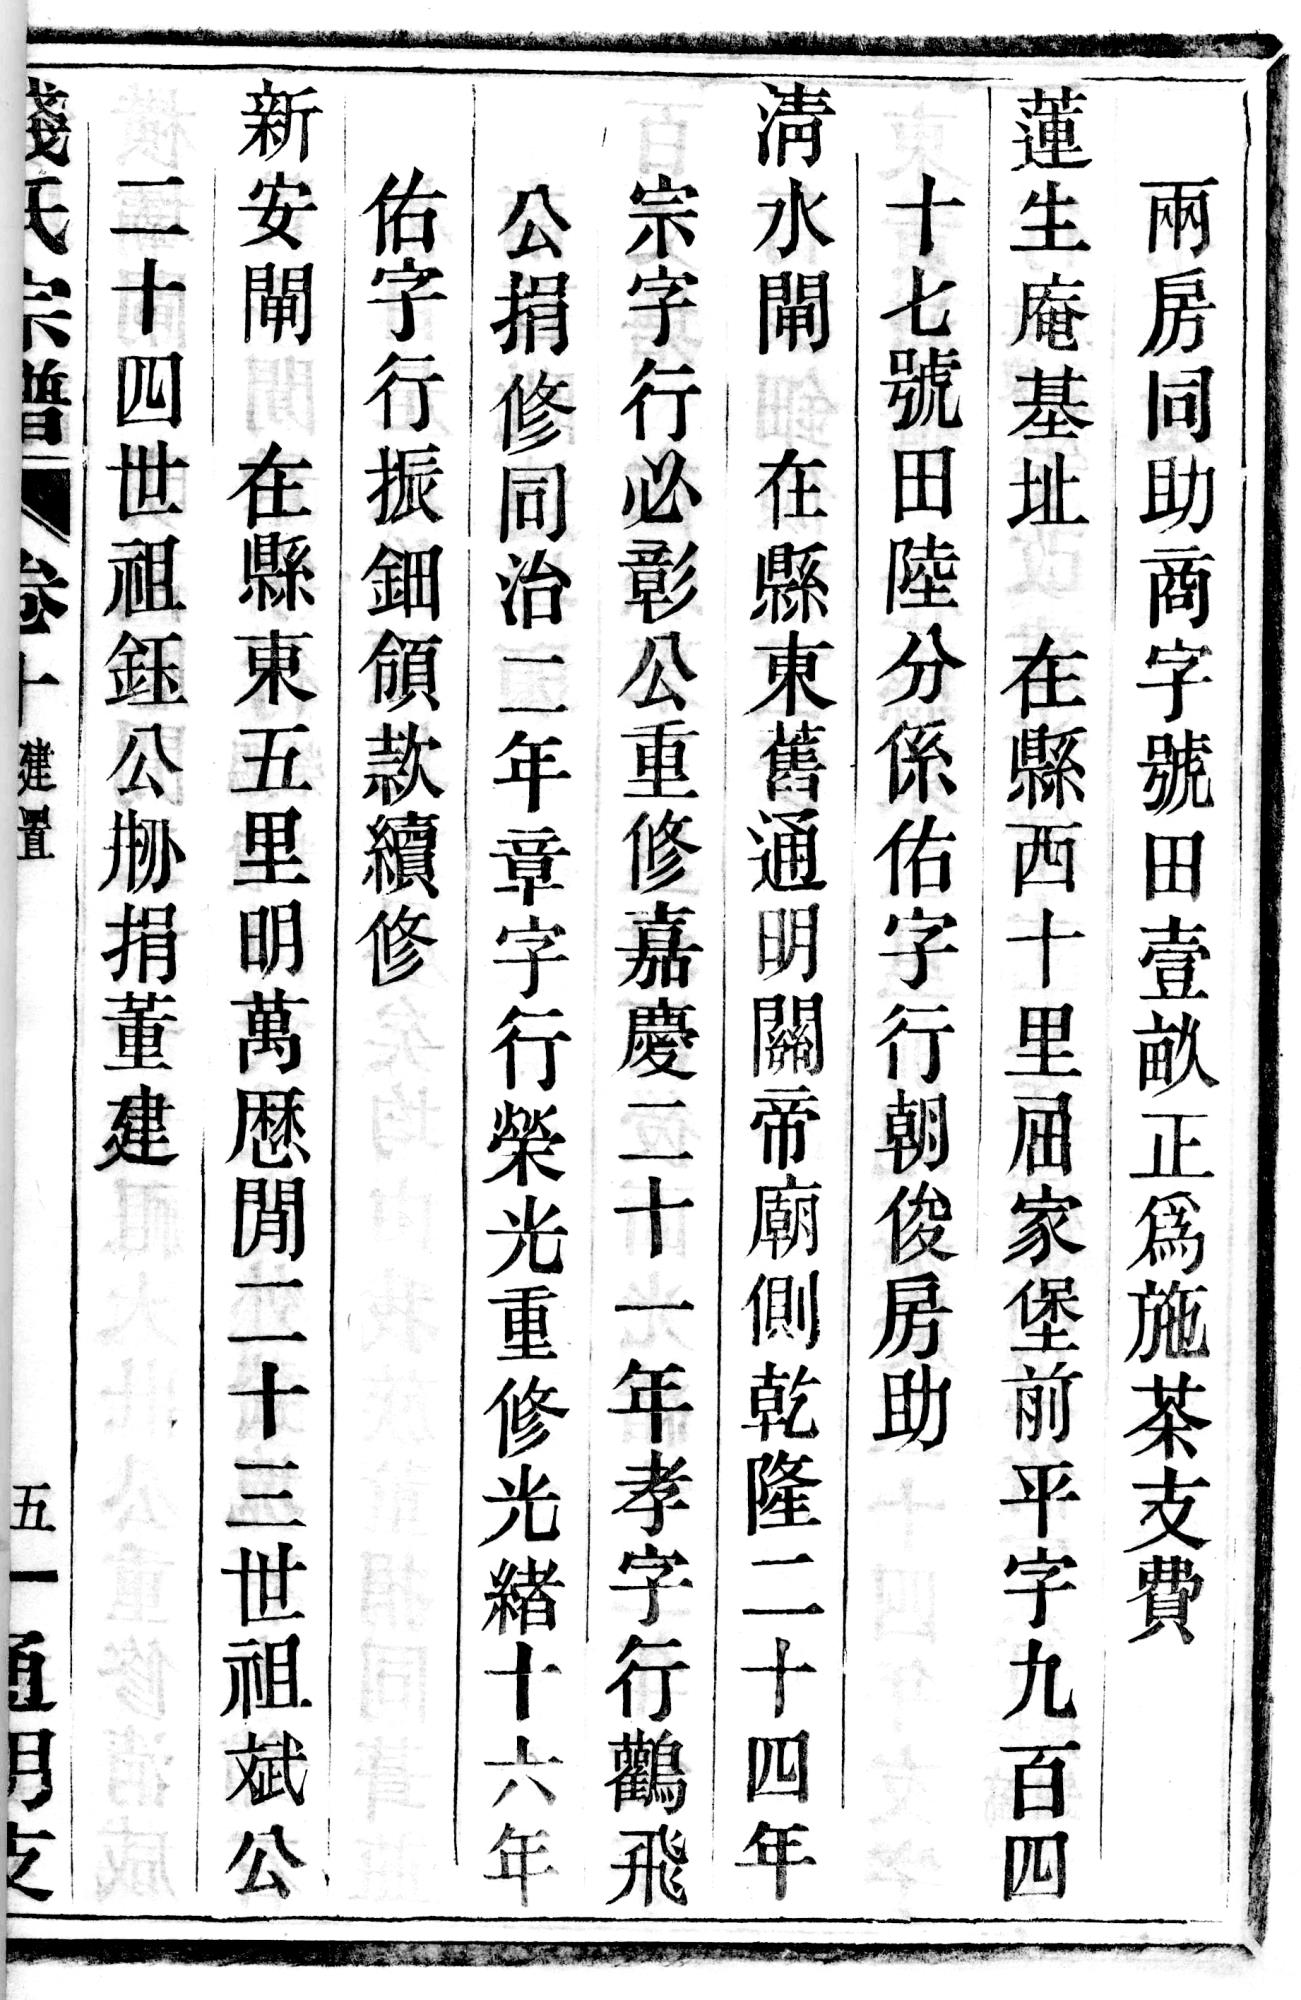 兩房同助商字號田壹畝正爲施茶支費
蓮生庵基址　在縣西十里屆家堡前平字九百四
十七號田陸分係佑字行朝俊房助
清水閘　在縣東舊通明關帝廟側乾隆二十四年
宗字行必彰公重修嘉慶二十一年孝字行鸛飛
公捐修同治二年章字行榮光重修光緒十六年
佑字行振鈿領款續修
新安閘　在縣東五里明萬歷閒二十三世祖斌公
二十四世祖鈺公剙捐董建
錢氏宗譜　卷十　建置　五　通明支